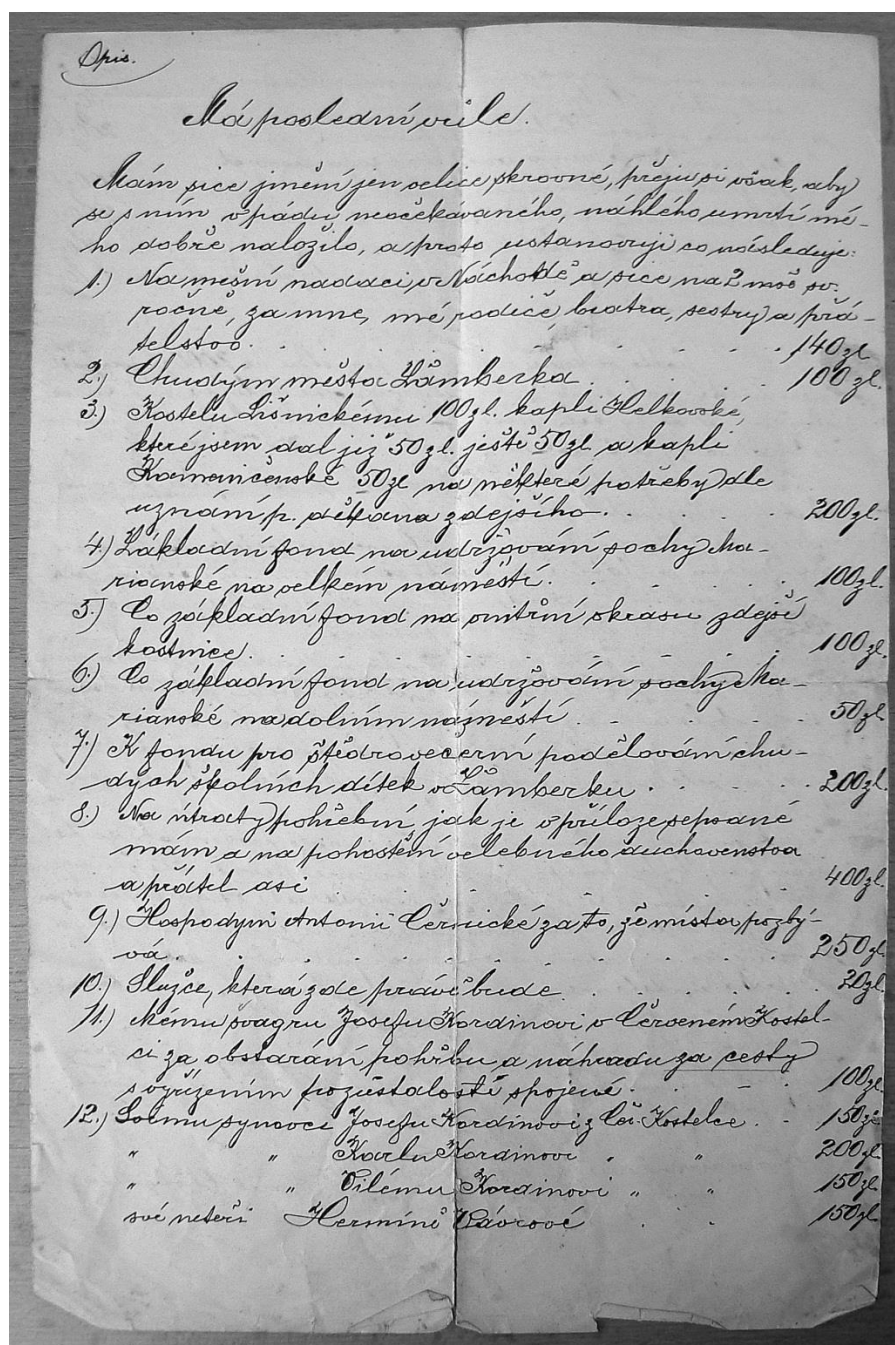 Opis.
Má poslední vůle.
Mám sice jmění jen velice skrovné, přeju si však, aby
se s ním v pádu neočekávaného, náhlého umrtí mé-
ho dobře naložilo, a proto ustanovuji co následuje:
1.) Na mešní nadaci v Náchodě a sice na 2 mše sv.
ročně, za mne, mé rodiče, bratra, sestry a přá-
telstvo. . . . . . . . 140zl.
2.) Chudým města Žamberka . . . . 100zl.
3.) Kostelu Lišnickému 100zl. kapli Helkovské,
které jsem dal již 50zl. ještě 50zl. a kapli
Kameničenské 50zl. na některé potřeby dle
uznání p. děkana zdejšího . . . . 200zl.
4.) Základní fond na udržování sochy Ma-
rianské na velkém náměstí . . . . 100zl.
5.) Co základní fond na vnitřní okrasu zdejší
kostnice . . . . . . . 100zl.
6.) Co základní fond na udržování sochy Ma-
rianské na dolním náměstí . . . . 50zl.
7.) K fondu pro štědrovečerní podělování chu-
dých školních dítek v Žamberku . . . . 200zl.
8.) Na útraty pohřební, jak je v příloze sepsané
mám a na pohostění velebného duchovenstva
a přátel asi . . . . . . . 400zl.
9.) Hospodyni Antonii Černické za to, že místa pozbý-
vá . . . . . . . . 250zl.
10.) Služce, která zde právě bude . . . . 20zl.
11.) Mému svagru Josefu Kordinovi v Červeném Kostel-
ci za obstarání pohřbu a náhradu za cesty
s vyřízením pozůstalosti spojené . . . . 100zl.
12.) Svému synovci Josefu Kordinovi z Čer. Kostelce . . 150zl.
" " Karlu Kordinovi " " 200zl.
" " Vilému Kordinovi " " 150zl.
své neteři Hermíně Vávrové . . . 150zl.